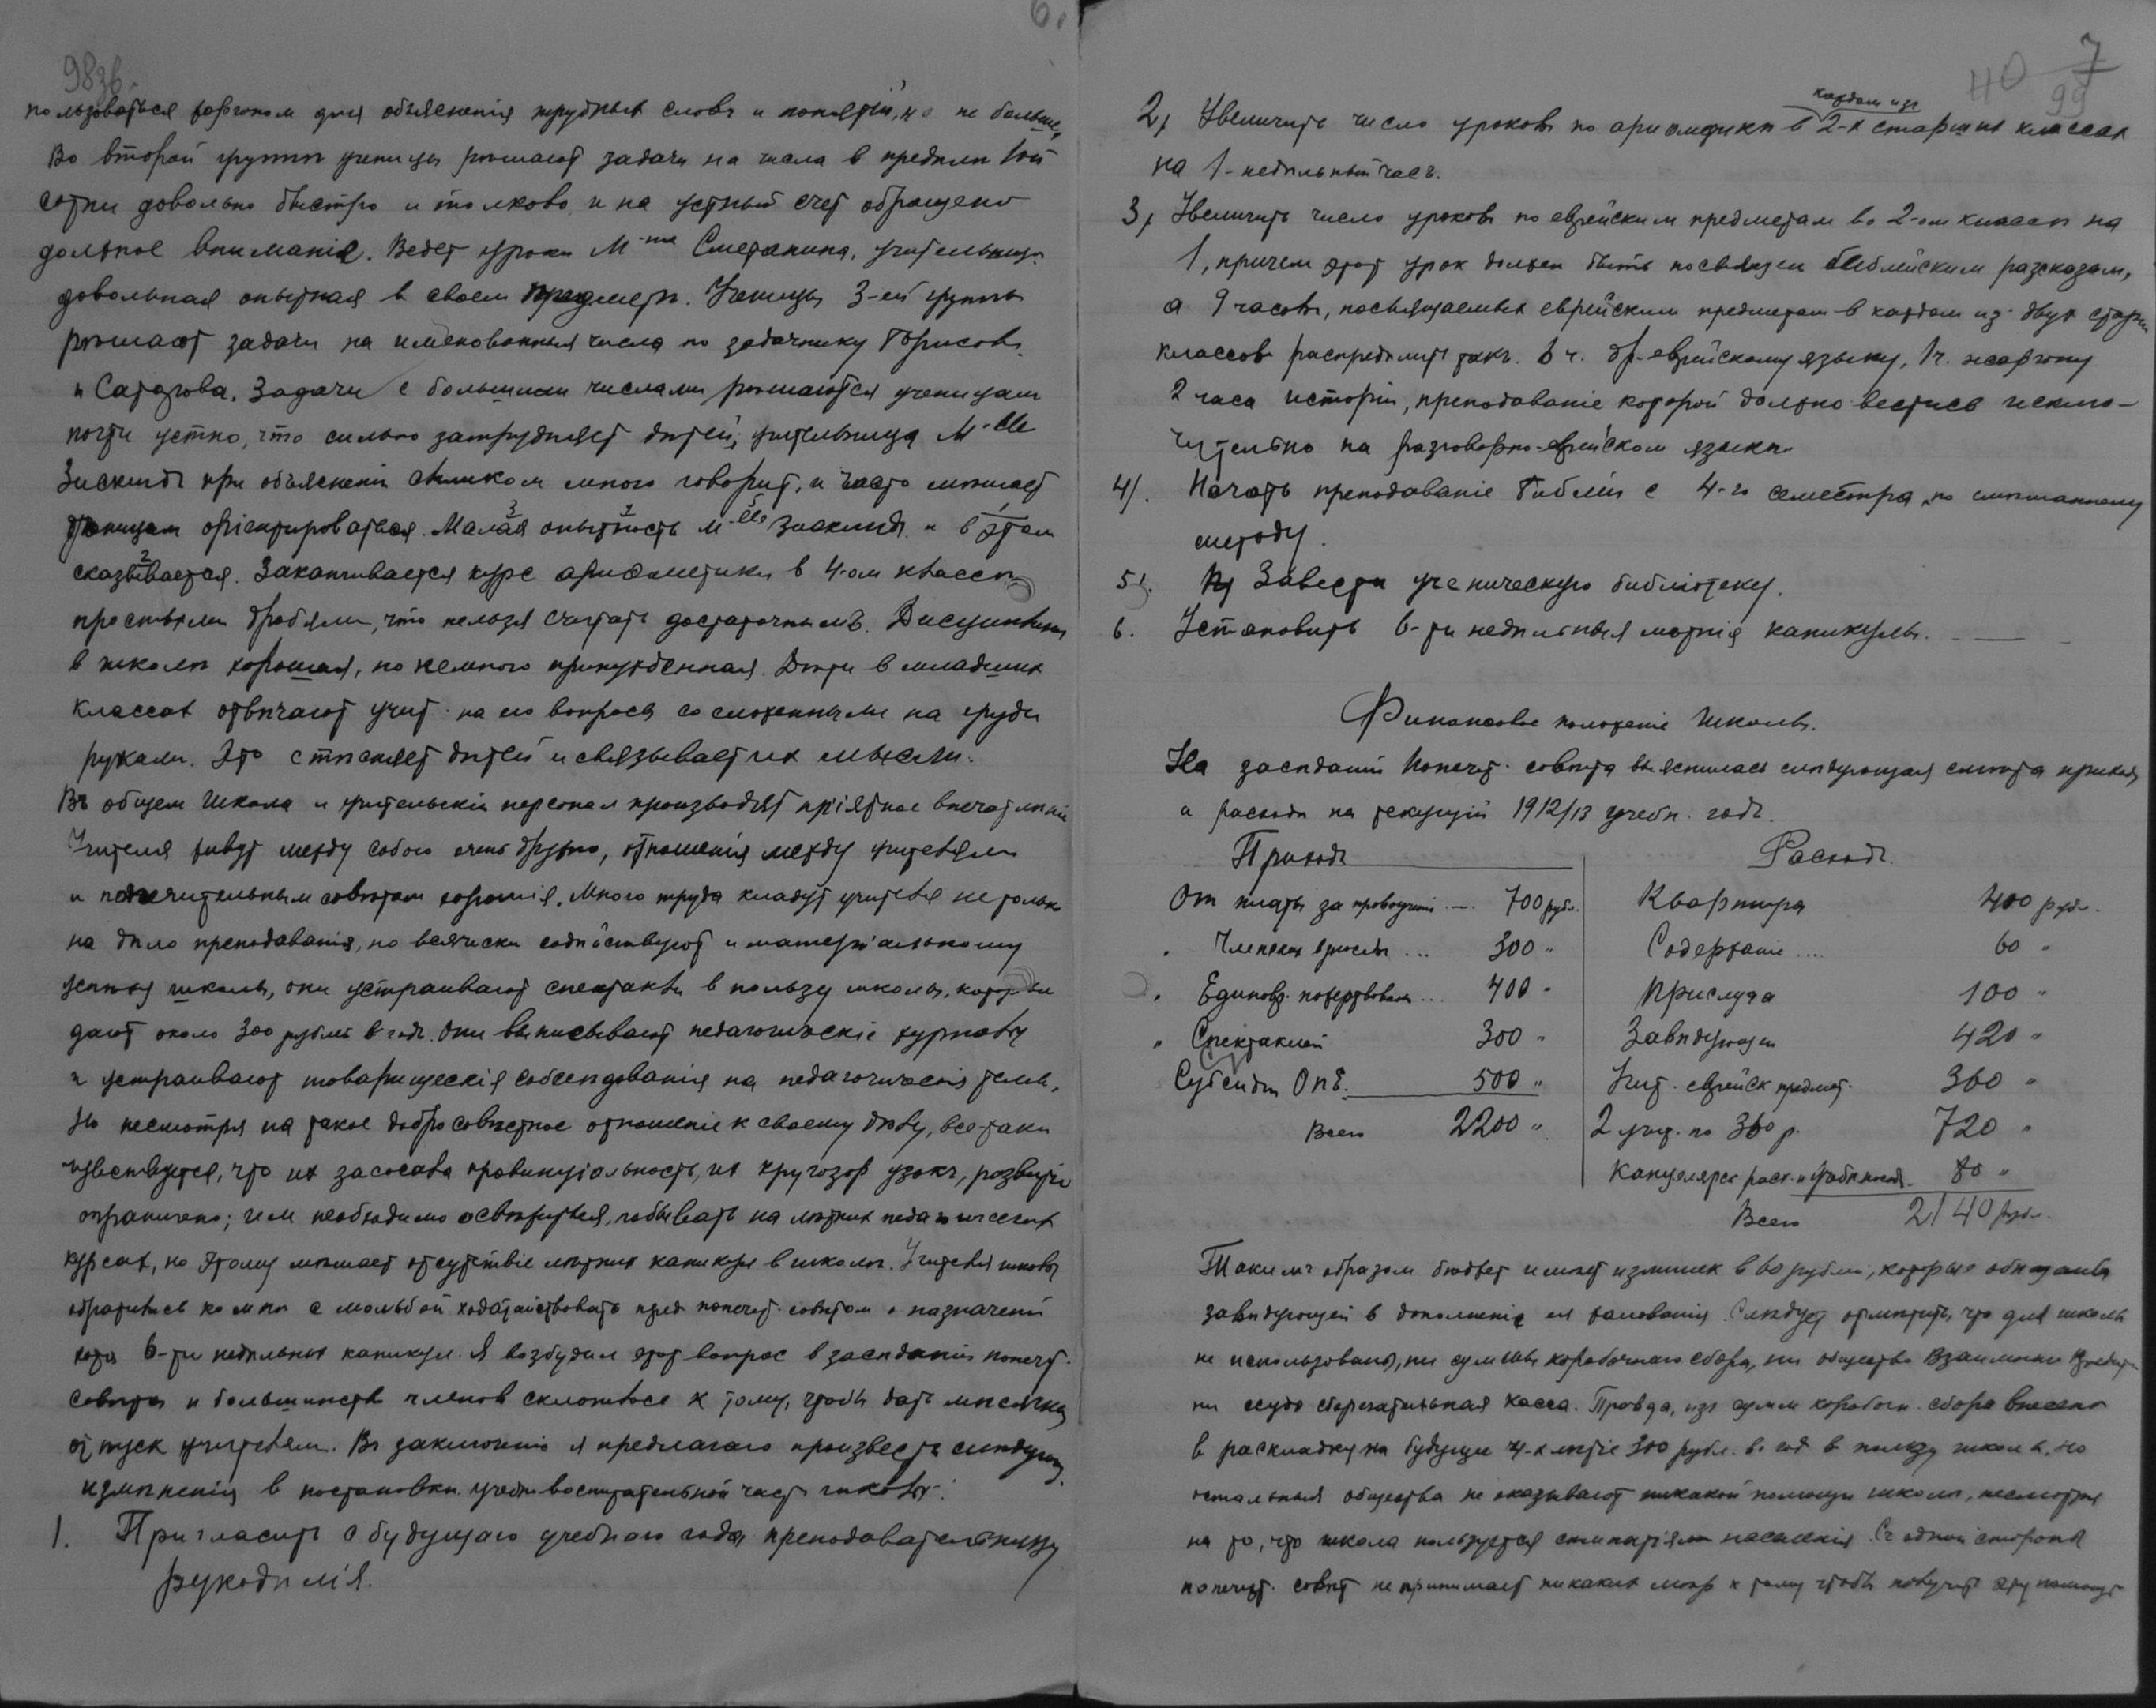 98об.
6.
пользоваться жаргоном для объясненія трудных словъ и понятій, но не больше.
Во второй группѣ ученицы рѣшают задачи на числа в предѣлѣ 1ой
сотни довольно быстро и толково, и на устный счет обращено
должное вниманіе. Ведет уроки М-me Сметанина, учительница
довольная опытная в своем предметѣ. Ученицы 3-ей группы
рѣшают задачи на именованныя числа по задачнику Борисов.
и Сатарова. Задачи с большими числами рѣшаются ученицам
почти устно, что сильно затрудняет дѣтей, учительница М-lle
Зискиндъ при объясненіи слишком много говорит, и часто мѣшает
ученицам оріентироваться. Малая опытность М-lle Зискиндъ и в этом
сказывается. Заканчивается курс ариѳметики в 4-ом классѣ
простыми дробями, что нельзя считать достаточнымъ. Дисциплина
в школѣ хорошая, но немного принужденная. Дѣти в младших
классах отвѣчают учит. на его вопросы со сложенными на груди
руками. Это стѣсняет дѣтей и связывает их мысли.
Въ общем школа и учительскій персонал производят пріятное впечатлѣніе
Учителя живут между собою очень дружно, отношенія между учителями
и попечительным совѣтом хорошія. Много труда кладут учителя не только
на дѣло преподаванія, но всячески содѣйствуют и матеріальному
успѣху школы, они устраивают спектакли в пользу школы, которые
дают около 300 рублей в год. Они выписывают педагогическіе журналы
и устраивают товарищескія собесѣдованія на педагогическія темы.
Но несмотря на такое добросовѣстное отношеніе к своему дѣлу, все таки
чувствуется, что их засосала провинціальность, их кругозор узокъ, развитіе
ограничено; им необходимо освѣжиться, побывать на лѣтних педагогических
курсах, но этому мѣшает отсутствіе лѣтних каникул в школѣ. Учителя школы
обратились ко мнѣ с мольбой ходатайствовать пред попечит. совѣтом о назначеніи
хотя 6-ти недѣльных каникул. Я возбудил этот вопрос в засѣданіи попечит.
совѣта и большинство членов склонилось к тому, чтобы дать мѣсячный
отпуск учителям. Въ заключеніе я предлагаю произвести слѣдующ.
измѣненія в постановкѣ учебно воспитательной части школы:
1. Пригласить с будущаго учебнаго года преподавательницу
рукодѣлія.
40
7
99
каждом изъ
2) Увеличить число уроковъ по ариѳметикѣ в 2-х старших классах
на 1-недѣльный часъ.
3) Увеличить число уроковъ по еврейским предметам во 2-ом классѣ на
1, причем этот урок должен быть посвящен библейским разсказам,
а 9 часовъ, посвящаемых еврейским предметам в каждом из двух старш.
классов распредѣлить такъ. 6 ч. др.-еврейскому языку, 1 ч. жаргону
2 часа исторіи, преподаваніе которой должно вестись исклю-
чительно на разговорно-еврейском языкѣ.
4). Начать преподаваніе Библіи с 4-го семестра, по смѣшанному
методу.
5). Завести ученическую библіотеку.
6. Установить 6-ти недѣльныя лѣтнія каникулы.
Финансовое положеніе школы.
На засѣданіи попечит. совѣта выяснилась слѣдующая смѣта прихода
и расхода на текущій 1912/13 учебн. годъ.
Приходъ
От платы за правоученіе — 700 рубл.
" Членских взносовъ ... 300 "
" Единовр. пожертвован. ... 400 "
" Спектаклей 300 "
Субсидія ОПЕ. 500 "
Всего 2200 "
Расходъ.
Квартира 400 рубл.
Содержаніе .... 60 "
Прислуга 100 "
Завѣдующей 420 "
Учит. еврейск предмет. 360 "
2 учит. по 360 р. 720 "
Канцелярск расх. и учебн. пособ. 80 "
Всего 2140 рубл.
Таким образом бюджет имѣет излишек в 60 рублей, которые обѣщаны
завѣдующей в дополненіе ея жалованія. Слѣдует отмѣтить, что для школы
не использованы, ни суммы коробочнаго сбора, ни общество Взаимнаго Кредита
ни ссудо сберегательная касса. Правда, изъ сумм коробочн. сбора внесено
в раскладку на будущее 4-х лѣтіе 300 рубл. в год в пользу школы, но
остальныя общества не оказывают никакой помощи школѣ, несмотря
на то, что школа пользуется симпатіями населенія. Съ одной стороны
попечит. совѣт не принимает никаких мѣр к тому чтобы получить эту помощь